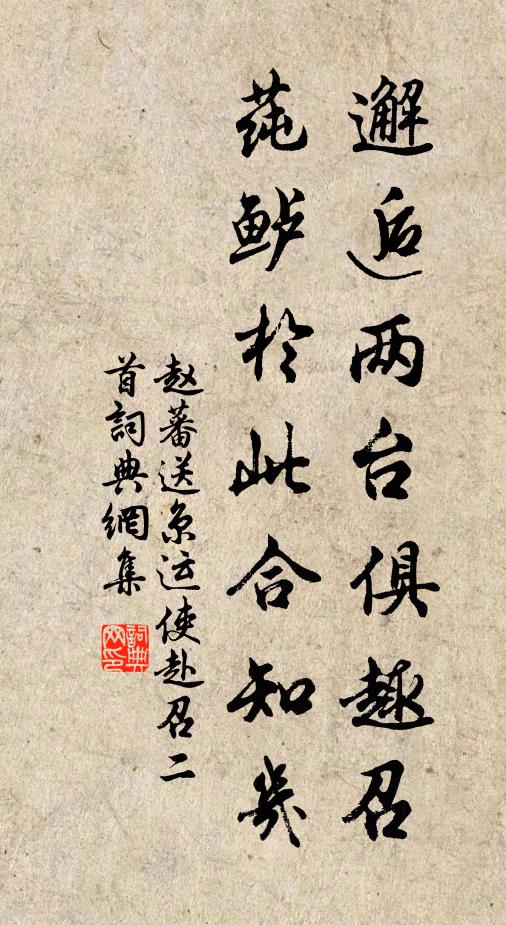 邂逅两台俱趣召
莼鲈於此合知几
赵蕃送京运使赴召二
首詞典網集
詞典网印